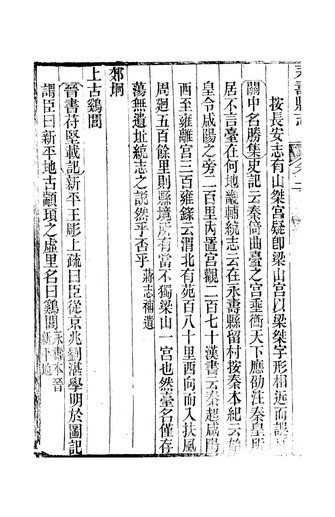 永壽縣志
按長安志有山桀宮疑卽梁山宮以梁桀字形相近而誤
關中名勝集史記云秦筒曲臺之宮垂衡天下應劭注秦皇所
居不言臺在何地叢輔統志云在永壽縣留村按秦本紀云始
皇令咸陽之旁二百里內置宮觀二百七十漢書云秦起咸陽
西至雍離宮三百雍錄云渭北有苑百八十里西向而入扶風
周迴五百餘里則縣境所有當不獨梁山一宮也然臺名僅存
蕩無遺址統志之說然乎否乎蔣志補遺
郊坰
上古鷄閭
晉書苻堅載記新平王彫上疏曰臣從京兆劉湛學明於圖記
謂臣曰新平地古顓頊之虛里名曰鷄閭永壽本晉新平地